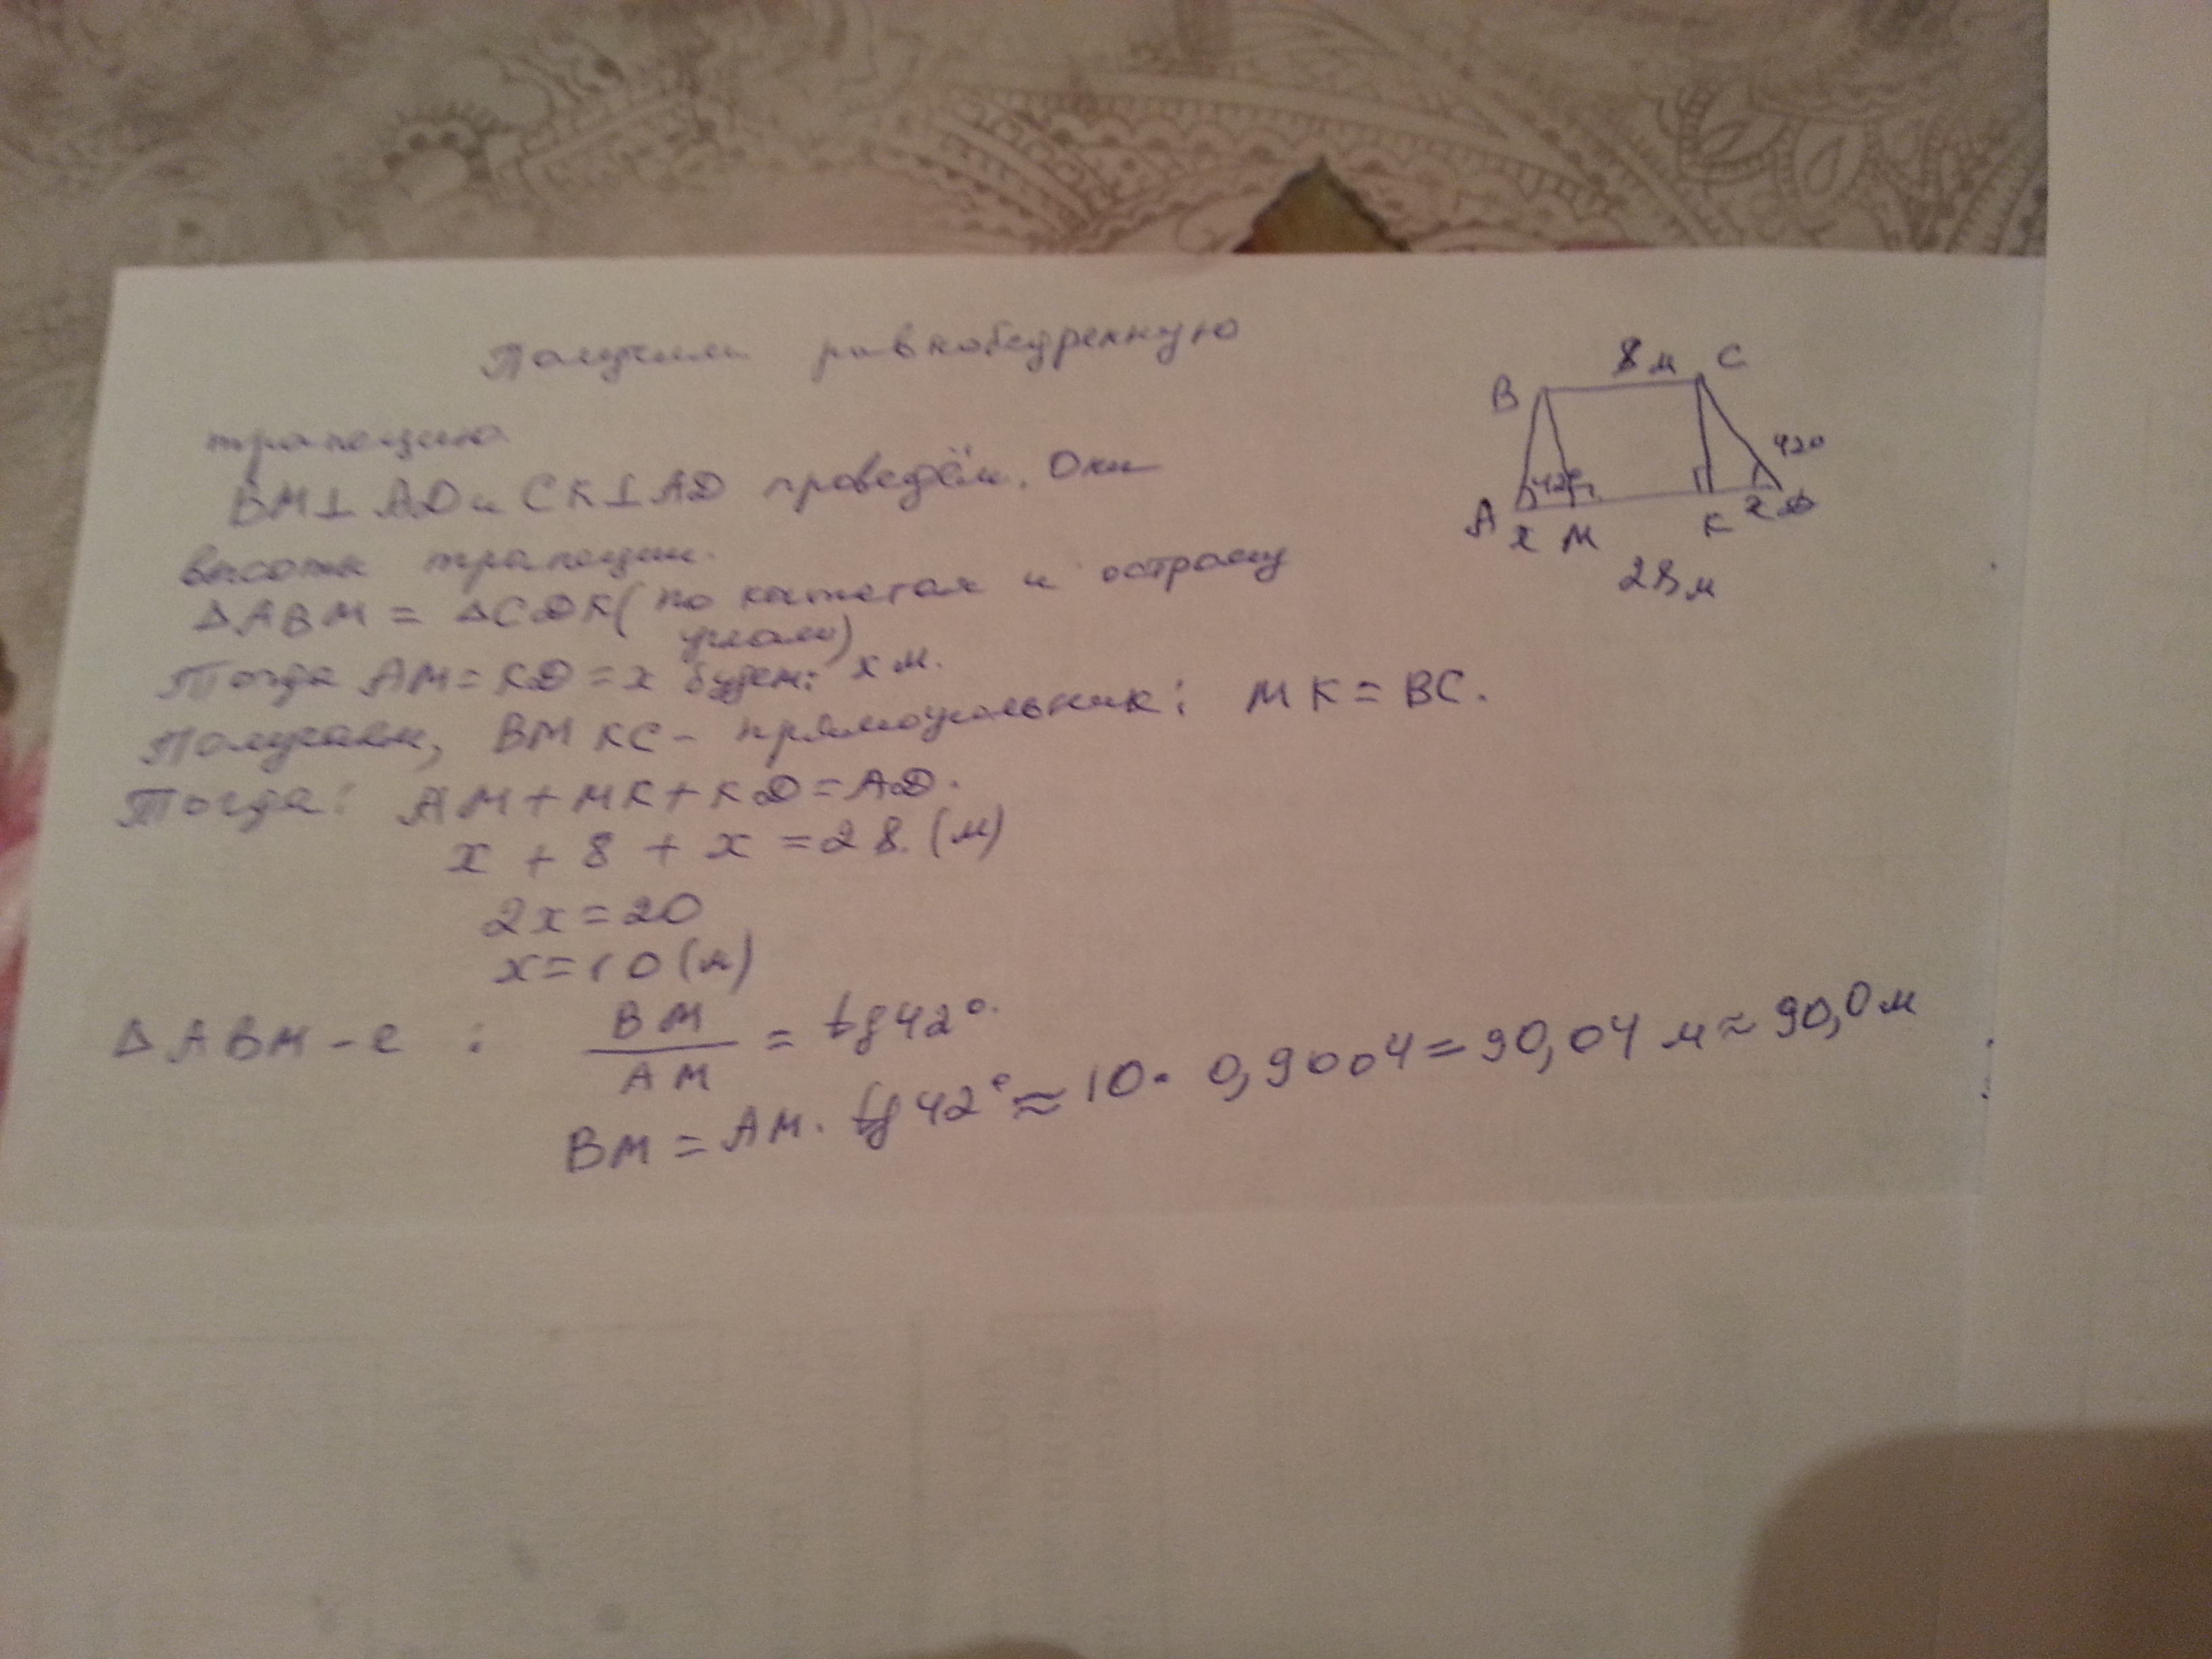 Получим равнобедренную
трапецию
BM⊥AD и CK⊥AD проведём. Они
высоты трапеции.
△ABM = △CDK (по катетам и острому
углам)
Тогда AM = KD = x будем: x м.
Получаем, BMKC – прямоугольник: MK = BC.
Тогда: AM + MK + KD = AD.
x + 8 + x = 28. (м)
2x = 20
x = 10 (м)
△ABM – e : BM/AM = tg 42°.
BM = AM · tg 42° ≈ 10 · 0,9004 = 90,04 м ≈ 90,0 м
8 м
B C
42° 42°
A x M K x D
28 м